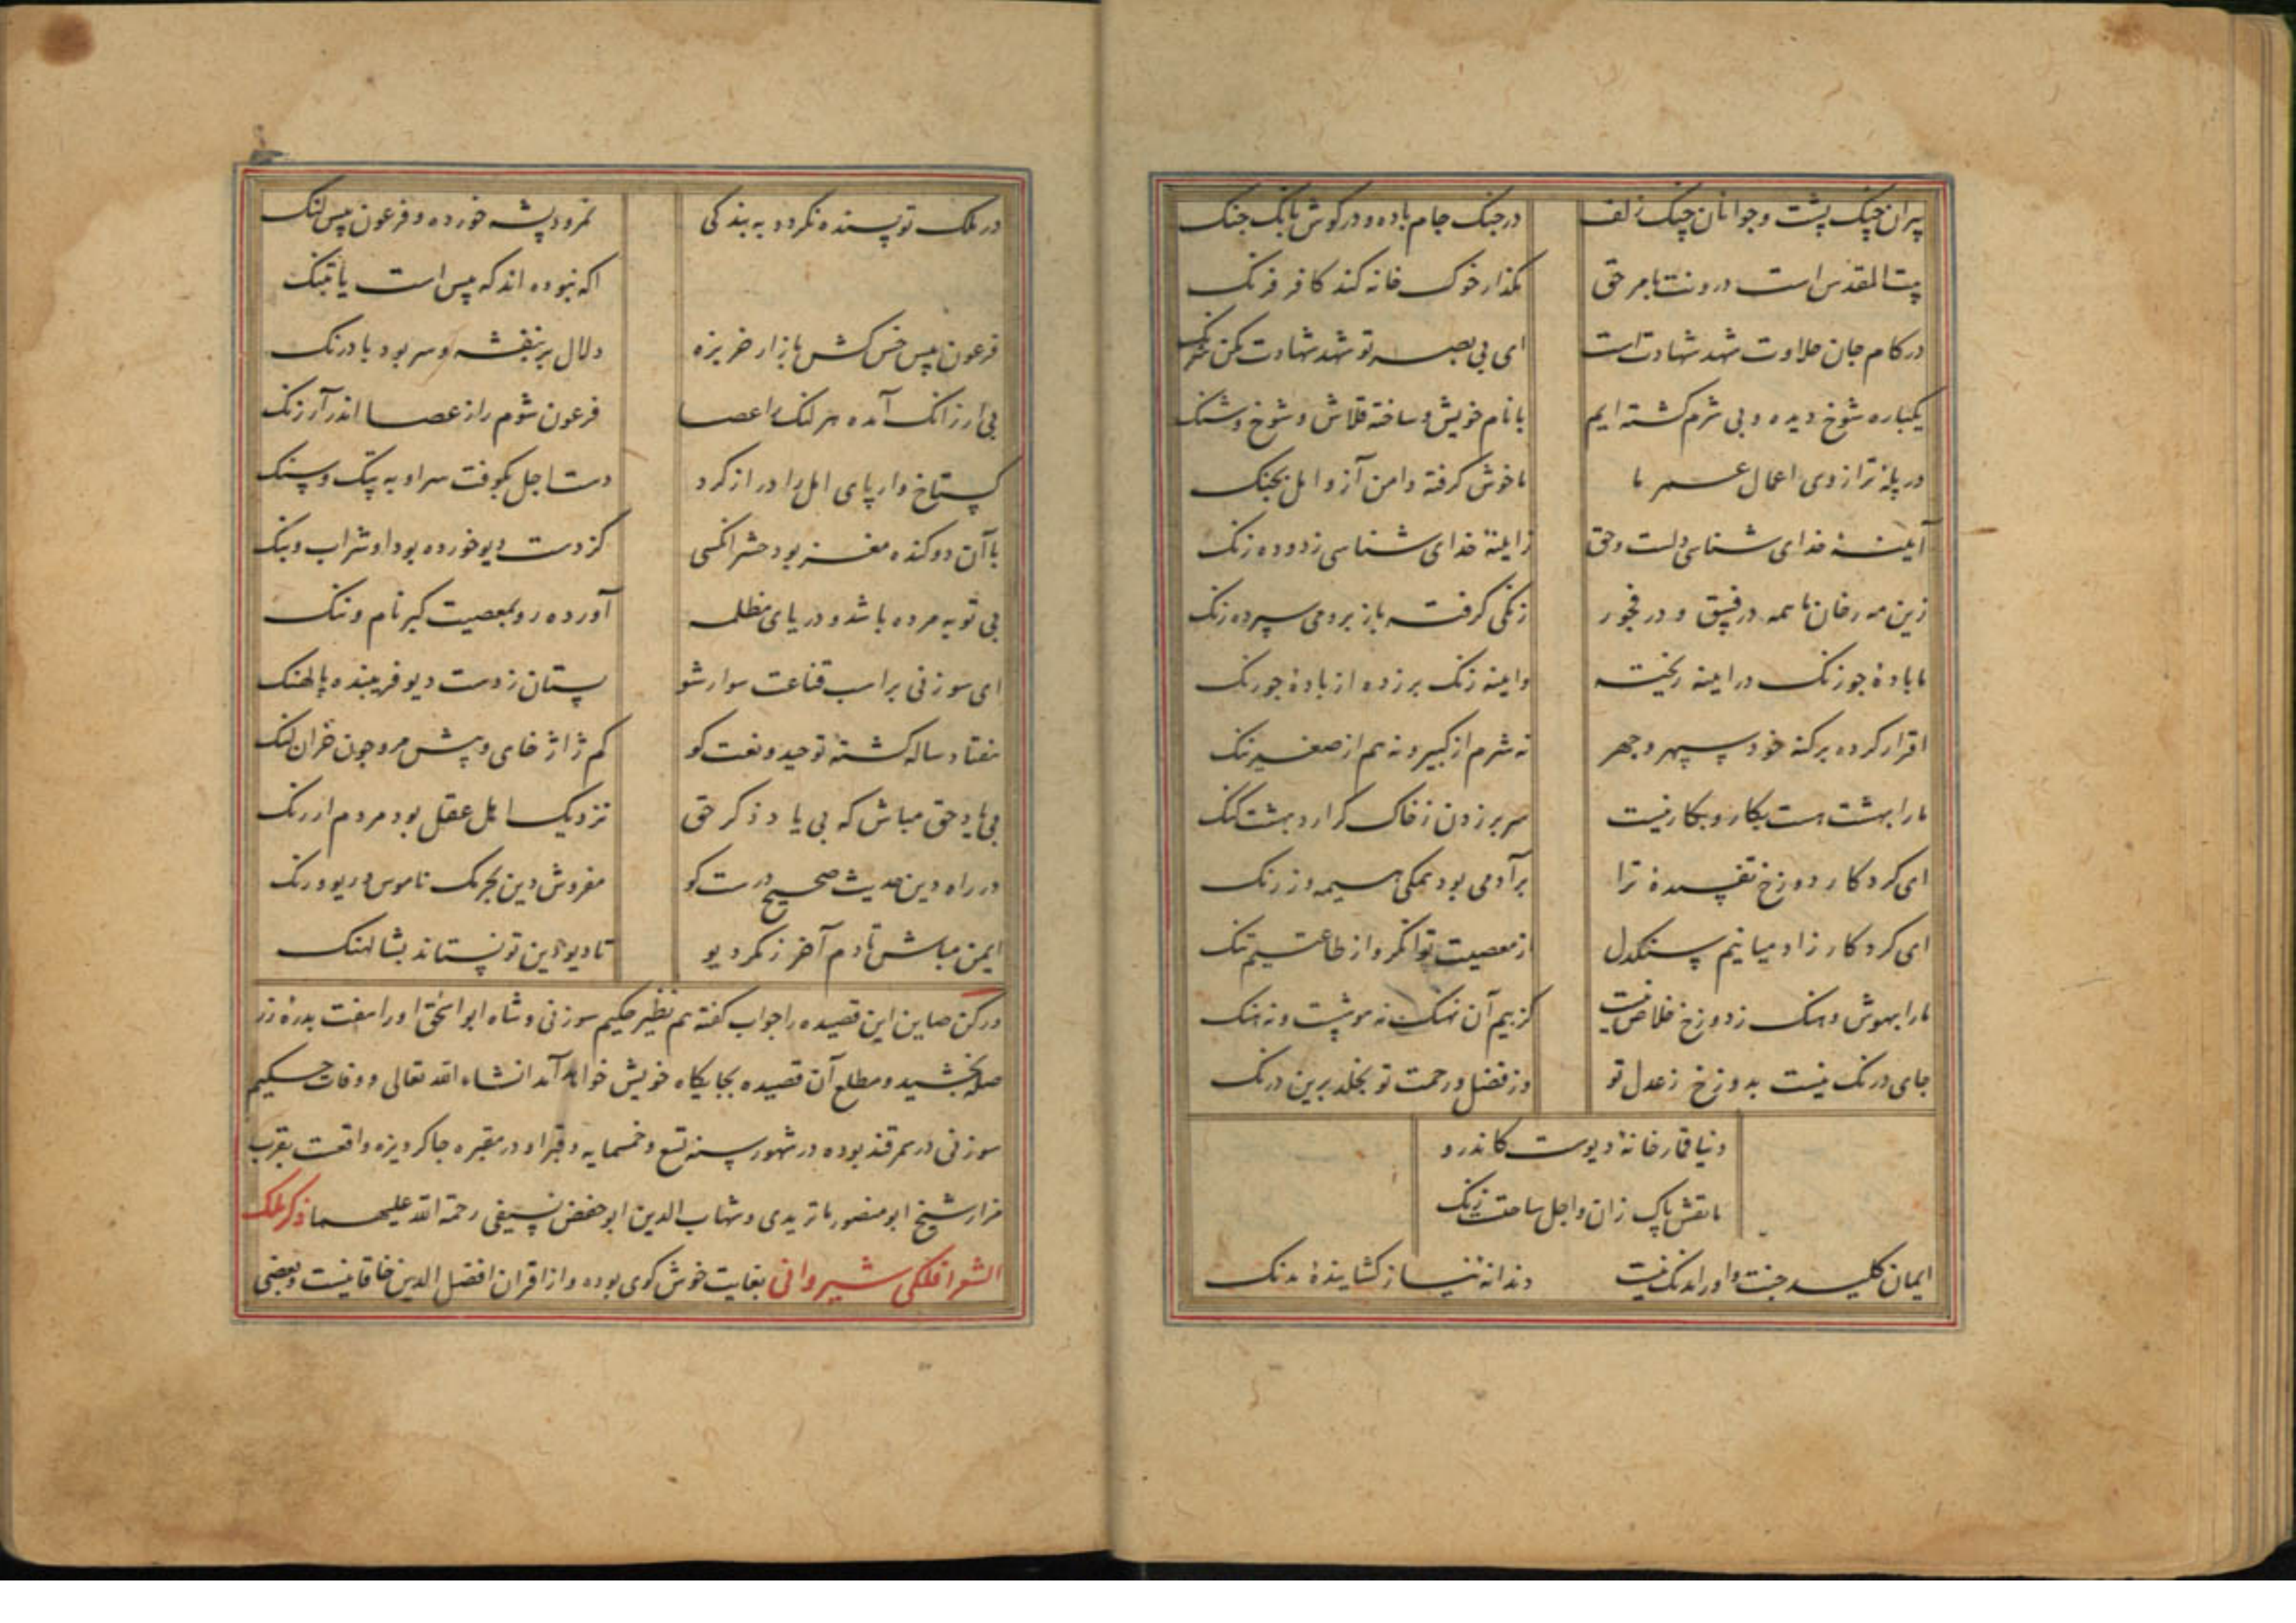 پیران چنک پشت و جوانان چنک زلف در چنک جام باده و در کوش بانک چنک
بیت المقدس است درونت بامر حق مکذار خوک خانه کند کافر فرنک
در کام جان حلاوت شهد شهادت است ای بی بصر تو شهد شهادت مکن شرنک
یکباره شوخ دیده و بی شرم کشته ایم با نام خویش ساخته قلاش و شوخ و شنک
در پله ترازوی اعمال عمر ما ما خوش کرفته دامن آز و امل بچنک
آیینه خدای شناسی دلست وحق ز اینه خدای شناسی زدوده زنک
زین مه رخان ما همه در فسق و در فجور زنکی کرفته باز برومی سپرده زنک
ما باده چو زنک در اینه ریخته و اینه زنک برزده از باده چو رنک
اقرار کرده بر کنه خود بسر و جهر نه شرم از کبیر و نه هم از صغیر ننک
ما را بهشت هست بکار و بکار نیست سر بر زدن ز خاک کرارد بهشت کنک
ای کردکار دوزخ تفسیده ترا بر آدمی بود همکی هیمه و زرنک
ای کردکار زاد میانیم سنکدل از معصیت توانکر و از طاعتیم تنک
ما را بهوش و هنک ز دوزخ خلاص نیست کز بیم آن نهنک نه هوشست و نه هنک
جای درنک نیست بدوزخ ز عدل تو وز فضل و رحمت تو بخلد برین درنک
دنیا قمارخانه دیوست کاندرو
ما نقش پاک زان و اجل ساخته زنک
ایمان کلید جنت و اورا مدنک نیست دندانه نیاز کشاینده مدنک
در ملک تو پسنده نکردد به بندکی نمرود پشه خورده و فرعون پیس لنک
اکه نبوده اند که پیس است یا تبنک
فرعون پیس خس کش بازار خربزه دلال بر بنفشه و سر بود بادرنک
بی ارز انک آمده هر لنک را عصا فرعون شوم را ز عصا اندر آر زنک
کستاخ وار پای امل را دراز کرد دست اجل بکوفت سر او به پتک و سنک
با آن دو کنده مغز بود حشر انکسی کز دست دیو خورده بود او شراب و بنک
بی توبه مرده باشد و در یای مظلمه آورده رو بمعصیت کبر نام و ننک
ای سوزنی بر اسب قناعت سوار شو بستان ز دست دیو فریبنده پالهنک
هفتاد ساله کشته توحید و نعت کو کم ژاژ خای و بیش مرو چون خران لنک
بی یاد حق مباش که بی یاد و ذکر حق نزدیک اهل عقل بود مردم از رنک
در راه دین حدیث صحیح درست کو مفروش دین بجرنک ناموس و ریو و رنک
ایمن مباش تا دم آخر ز مکر دیو تا دیو دین تو نستاند بشالهنک
و رکن صاین این قصیده را جواب کفته هم نظیر حکیم سوزنی و شاه ابو اسحق اورا هفت بدره زر
صله بخشید و مطلع آن قصیده بجایکاه خویش خواهد آمد انشاء الله تعالی و وفات حکیم
سوزنی در سمرقند بوده در شهور سنه تسع و خمسمایه و قبر او در مقبره جاکردیزه واقعت بقرب
مزار شیخ ابو منصور ماتریدی و شهاب الدین ابو حفض نسفی رحمة الله علیهما ذکر ملک
الشعرا فلکی شیروانی بغایت خوش کوی بوده و از اقران افضل الدین خاقانیست و بعضی